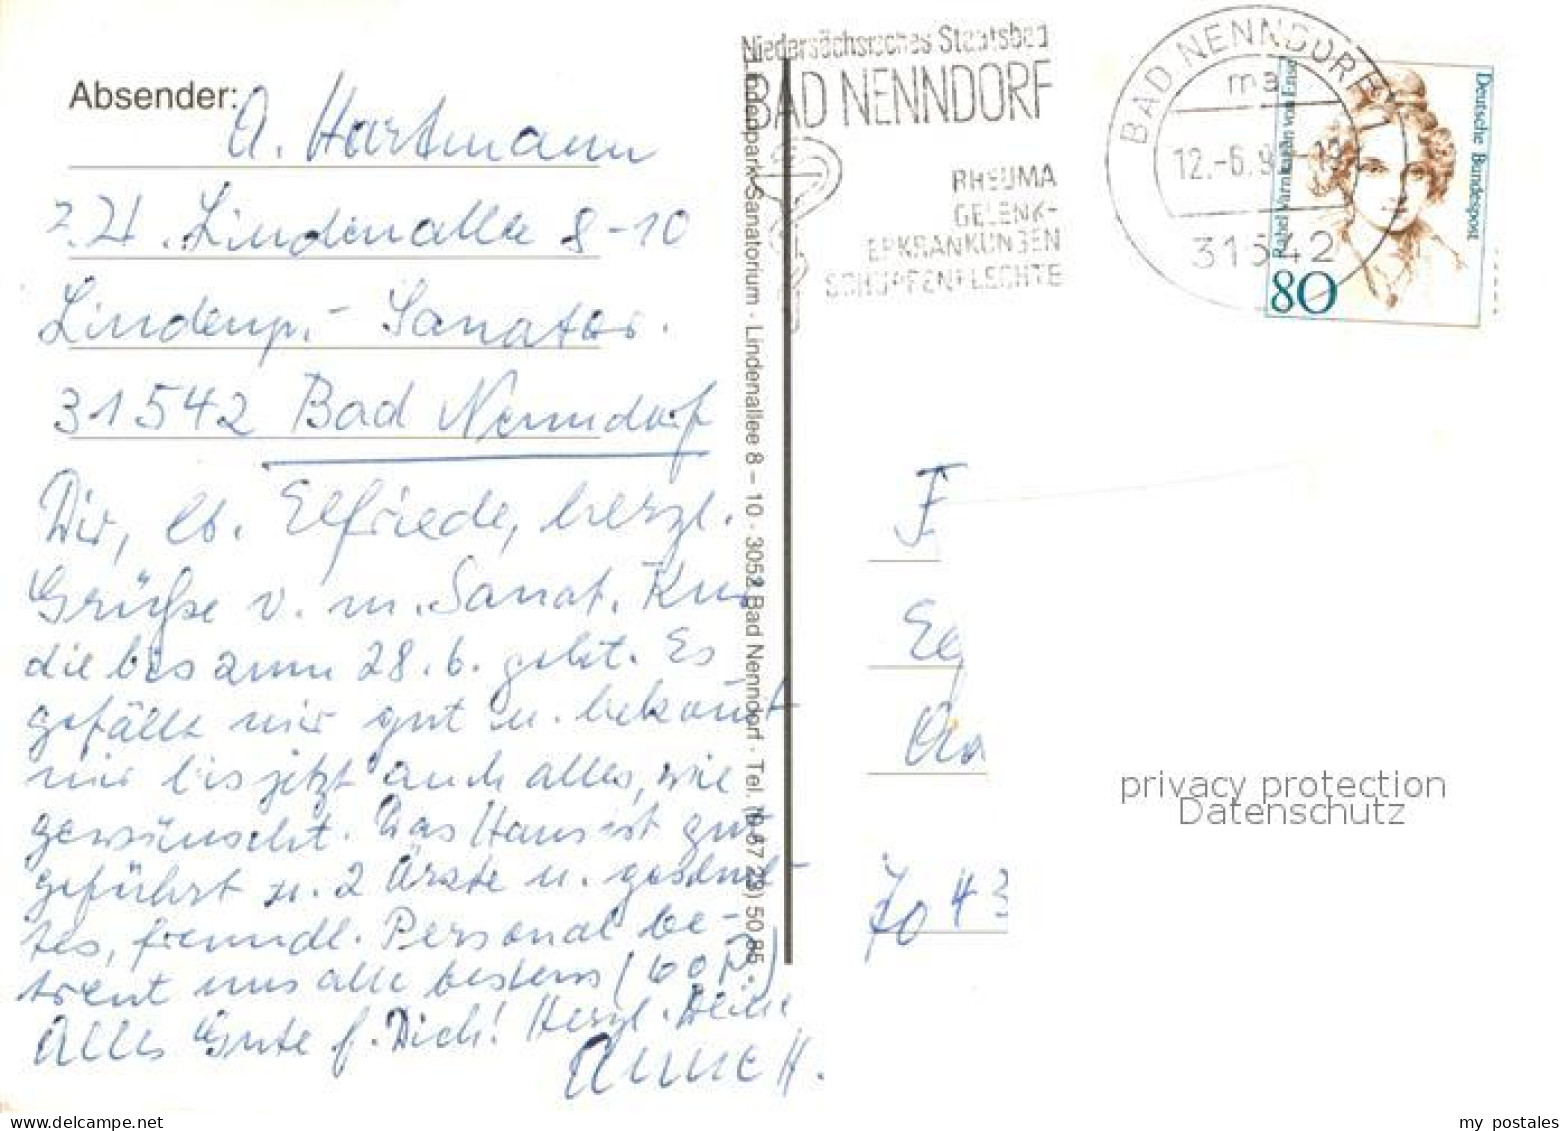 Absender: A. Hartmann
z. Zt. Lindenallee 8-10
Lindenp.- Sanator.
31542 Bad Nenndorf
Dir, lb. Elfriede, herzl.
Grüße v. m. Sanat. Kur,
die bis zum 28. 6. geht. Es
gefällt mir gut u. bekommt
mir bis jetzt auch alles, wie
gewünscht. Das Haus ist gut
geführt u. 2 Ärzte u. geschul-
tes, freundl. Personal be-
treut uns alle bestens (60 P.)
Alles Gute f. Dich! Herzl. Deine
Anne H.
Lindenpark-Sanatorium · Lindenallee 8 – 10 · 3052 Bad Nenndorf · Tel. (0 57 23) 50 85
Niedersächsisches Staatsbad
BAD NENNDORF
RHEUMA
GELENK-
ERKRANKUNGEN
SCHUPPENFLECHTE
BAD NENNDORF 1
ma
12.-6.9
31542
Deutsche Bundespost
Rahel Varnhagen von Ense
80
F
7043
privacy protection
Datenschutz
www.delcampe.net
my_postales